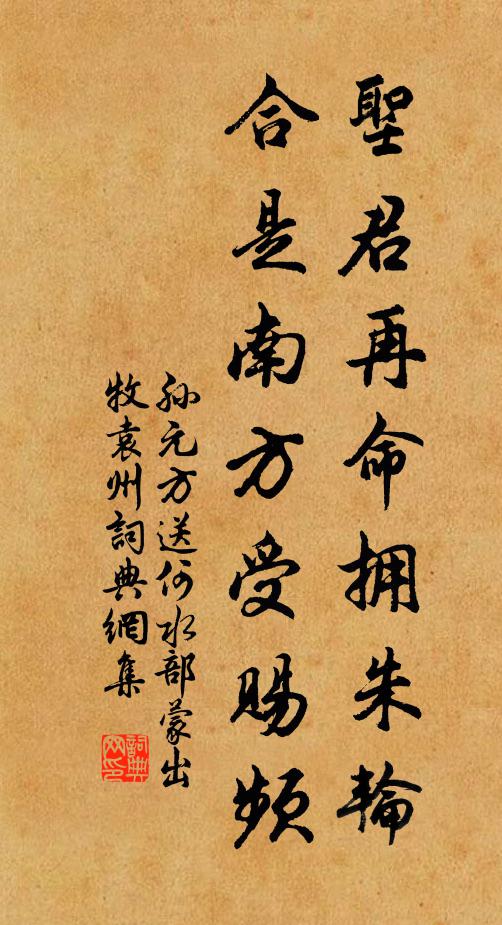 聖君再命拥朱輪
合是南方受賜頻
孙元方送何水部蒙出
牧袁州詞典網集
詞典网印